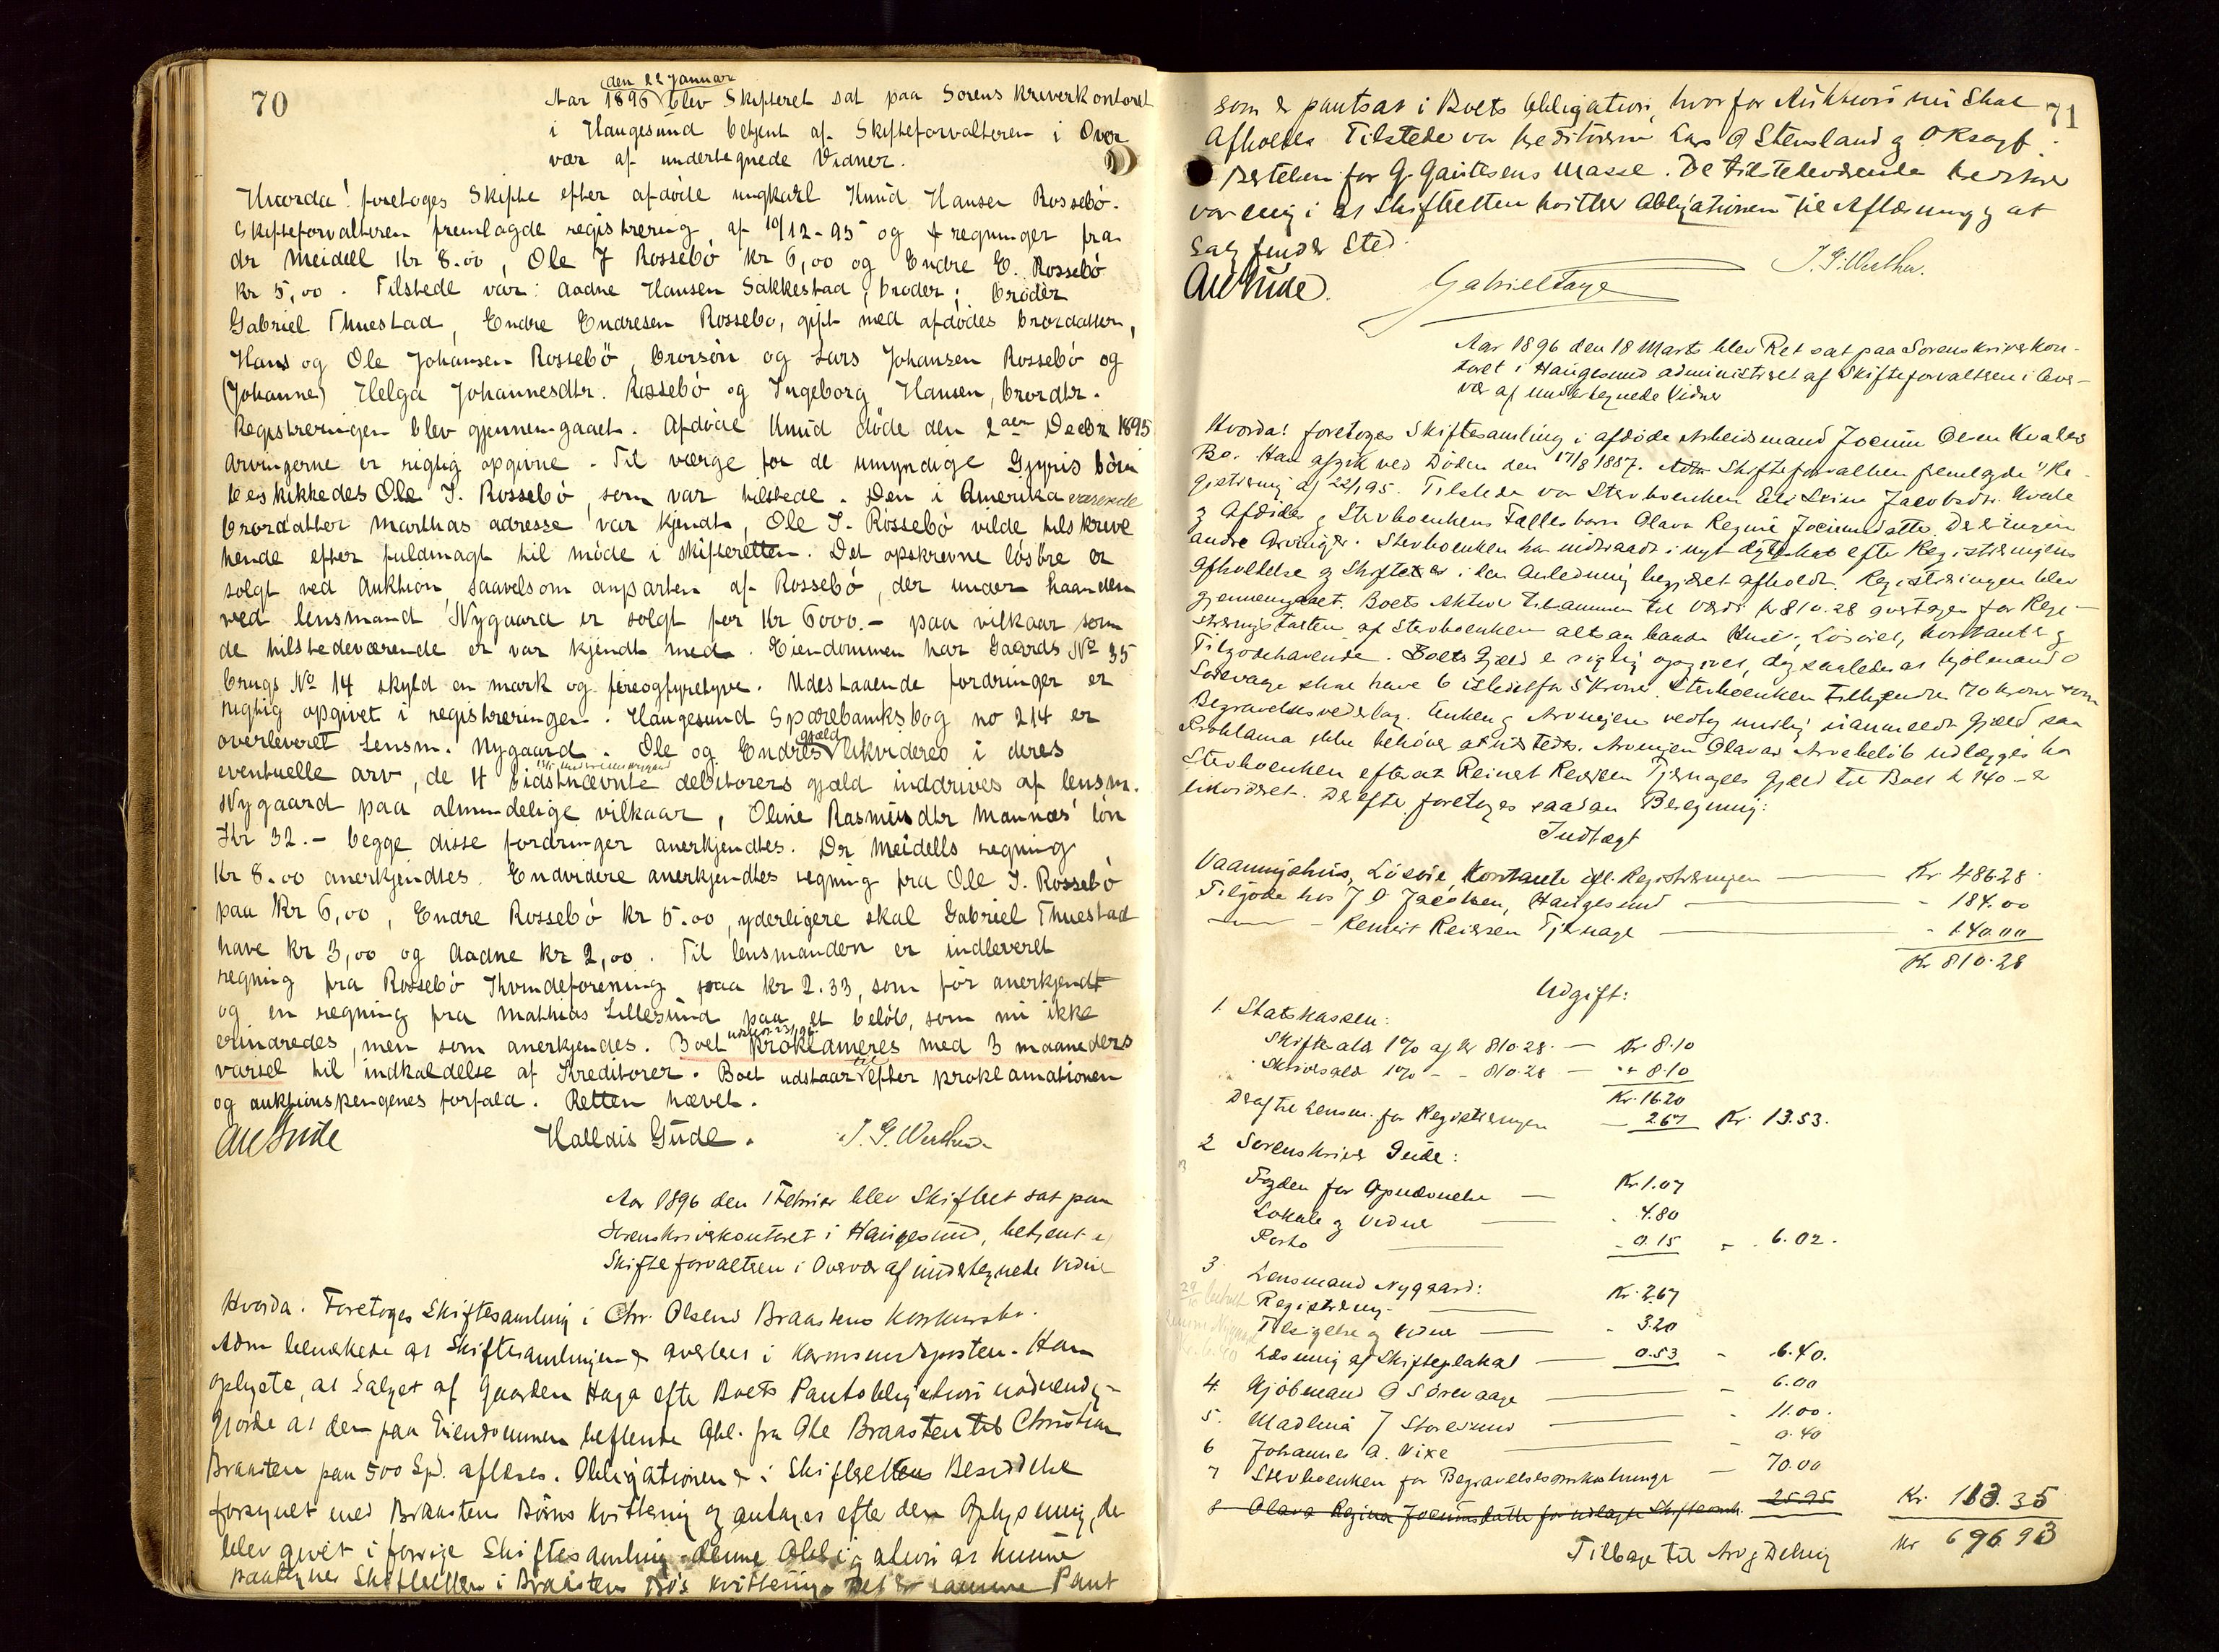 70
den 22 Januar
Aar 1896 blev Skifteret sat paa Sorenskriverkontoret
i Haugesund betjent af Skifteforvalteren i Over
vær af undertegnede Vidner.
Hvorda! foretoges Skifte efter afdøde ungkarl Knud Hansen Rossebó.
Skifteforvalteren fremlagde registrering af 19/12-95 og regninger fra
dr Meidell Kr 8.00, Ole J Rossebó Kr 6,00 og Endre E. Rossebó
Kr 5,00. Tilstede var: Aadne Hansen Sakkestad, broder; broder
Gabriel Thuestad, Endre Endresen Rossebo, gift med afdødes brordatter,
Hans og Ole Johansen Rossebö, brorsön og Lars Johansen Rossebó og
(Johanne) Helga Johannesdtr. Rossebó og Ingeborg Hansen, brordtr.
Registreringen blev gjennemgaaet. Afdøde Knud døde den 2den Decbr 1895
Arvingerne er rigtig opgivne. Til værge for de umyndige børn
beskikkedes Ole J. Rossebó, som var tilstede. Den i Amerika værende
brordatter Marthas adresse var kjendt, Ole J. Rossebó vilde tilskrive
hende efter fuldmagt til møde i skifteretten. Det opskrevne løsøre er
solgt ved Auktion, saavelsom anparten af Rossebó, der under haanden
ved lensmand Nygaard er solgt for Kr 6000.- paa vilkaar som
de tilstedeværende er var kjendt med. Eiendommen har Gaards No 35
brugs No 14 skyld en mark og fireogfyretyve. Udestaaende fordringer er
rigtig opgivet i registreringen. Haugesund Sparebanksbog no 214 er
overleveret Lensm. Nygaard. Ole og Endres gjæld likvideres i deres
eventuelle arv, de 4 sidstnævnte debitorers gjæld inddrives af lensm.
Nygaard paa almindelige vilkaar, Oline Rasmusdtr Mannæs' lön
Kr 32.- begge disse fordringer anerkjendtes. Dr Meidells regning
Kr 8.00 anerkjendtes. Endvidere anerkjendtes regning fra Ole J. Rossebó
paa Kr 6,00, Endre Rossebó Kr 5.00, yderligere skal Gabriel Thuestad
have Kr 3,00 og Aadne Kr 2,00. Til lensmanden er indleveret
regning fra Rossebó Kvindeforening paa Kr 2.33, som för anerkjendt
og en regning fra Mathias Lillesund paa et beløb, som nu ikke
erindredes, men som anerkjendes. Boet proklameres med 3 maaneders
varsel til indkaldelse af Kreditorer. Boet udstaar til efter proklamationen
og auktionspengenes forfald. Retten hævet.
Halldis Gude. J. G. Werther
Aar 1896 den 1 Februar blev Skifteret sat paa
Sorenskriverkontoret i Haugesund, betjent af
Skifteforvalteren i Overvær af undertegnede Vidner
Hvorda. Foretoges Skiftesamling i Chr. Olsens Braastens Konkursbo.
Adm bemærkede at Skiftesamlingen er averteret i Karmsundsposten. Han
oplyste, at Salget af Gaarden Haga efter Boets Pantobligation nødvendig-
gjorde at den paa Eiendommen heftende Obl. fra Ole Braasten til Christian
Braasten paa 500 Spd. aflæses. Obligationen er i Skifterettens Besiddelse
forsynet med Braastens Börns Kvittering og antages efter den Oplysning, der
blev givet i forrige Skiftesamling denne Obligation at kunne
paategnes Skifteretten i Braastens Bo's Kvittering. Det er samme Pant
71
som er pantsat i Boets Obligation, hvorfor Auktion nu skal
Afholdes. Tilstede var Kreditorerne Lars O Stensland og O Ksagf.
Bertelsen for G. Gautesens Masse. De tilstedeværende Kreditorer
var enig i at Skifteretten kvitterer Obligationen til Aflæsning og at
Salg finder Sted.
Gabriel Faye J. G. Werther.
Aar 1896 den 18 Marts blev Ret sat paa Sorenskriverkon-
toret i Haugesund administreret af Skifteforvalteren i Over-
vær af undertegnede Vidner
Hvorda! foretoges Skiftesamling i afdøde Arbeidsmand Jocum Olsen Kvales
Bo. Han afgik ved Døden den 17/8 1887. Skifteforvalteren fremlagde Re-
gistrering af 22/1 95. Tilstede var Stervboenken Jacobsdtr. Kvale
og Afdødes og Stervboenkens Fællesbarn Olava Regine Jocumsdatter. Der er ingen
andre Arvinger. Stervboenken har indtraadt i nyt Ægteskab efter Registreringens
Afholdelse og Skiftet er i den Anledning begjæret afholdt. Registreringen blev
gjennemgaaet. Boets Aktiver tilsammen til Værdi Kr 810.28 overtages for Regi-
streringstaxten af Stervboenken altsaa baade Huse, Løsøre, Kontanter og
Tilgodehavende. Boets Gjæld er rigtig opgivet, dog saaledes at Kjøbmand O
Sørevaage skal have 6 istedetfor 5 Kroner. Stervboenken tilkjendes 70 Kroner som
Begravelsesvederlag. Enken og Arvingen vedtog mulig uanmeldt Gjæld saa
Proklama ikke behøver at udstedes. Arvingen Olavas Arvebeløb udlægges hos
Stervboenken efterat Reinert Reiersen Tjernagels Gjæld til Boet Kr 140- er
likvideret. Derefter foretoges saadan Beregning:
Indtægt
Vaaningshus, Løsøre, Kontante ifl. Registreringen Kr. 486.28
Tilgode hos J O Jacobsen, Haugesund - 184.00
— - Reinert Reiersen Tjernagel - 140.00
Kr 810.28
Udgift:
1. Statskassen:
Skifteafg 1% af Kr 810.28. — Kr. 8.10
Skriversald 1% - - 810.28 — " 8.10
Kr. 16.20
Deraf til Lensm. for Registreringen — 2.67 Kr. 13.53.
2 Sorenskriver Gude:
Fogden for Kr. 1.07
Lokale og Vidner — 4.80
Porto — 0.15 - 6.02.
3. Lensmand Nygaard:
Registrering — Kr. 2.67
Tilsigelse og Vidner — 3.20
Læsning af Skifteplakat — 0.53 - 6.40.
4. Kjöbmand O Sörevaage — 6.00
5. Madlena J Storesund — 11.00.
6 Johannes A. Vixe — 0.40
7 Stervboenken for Begravelsesomkostninger — 70.00
8 Olava Regina Jocumsdatter for udlagte Skifteomk. 25.95 Kr. 113.35
Tilbage til Arv og Deling Kr 696.93